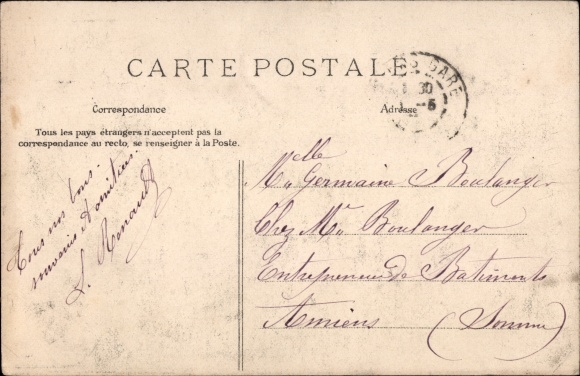 CARTE POSTALE
GARE
30
5
Correspondance
Adresse
Tous les pays étrangers n'acceptent pas la
correspondance au recto, se renseigner à la Poste.
Tous nos bons
souvenirs d'amitiés
L. Renault
Mlle Germaine Boulanger
Chez Mr Boulanger
Entrepreneur de Batiments
Amiens (Somme)